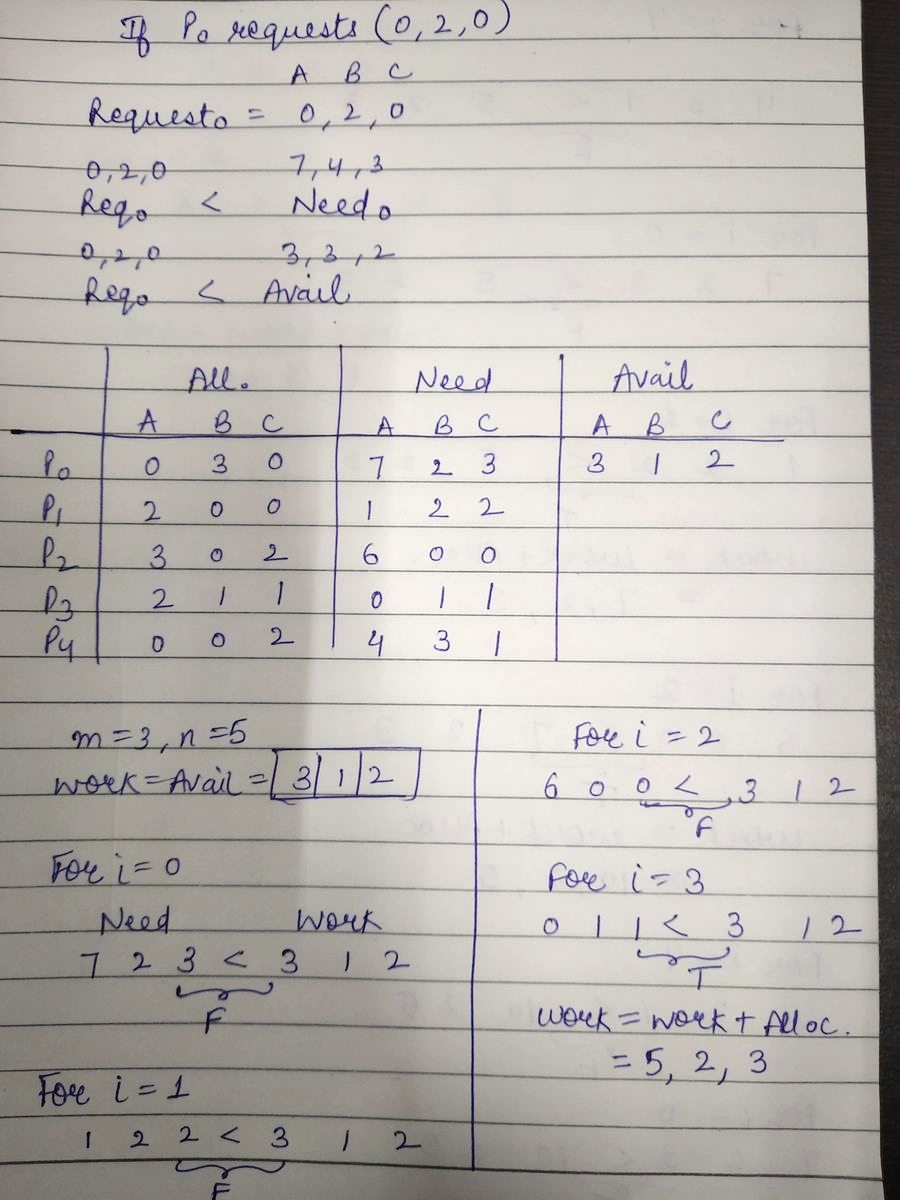 If P0 requests (0, 2, 0)
A B C
Request0 = 0, 2, 0
0, 2, 0 7, 4, 3
Req0 < Need0
0, 2, 0 3, 3, 2
Req0 < Avail.
All. Need Avail
A B C A B C A B C
P0 0 3 0 7 2 3 3 1 2
P1 2 0 0 1 2 2
P2 3 0 2 6 0 0
P3 2 1 1 0 1 1
P4 0 0 2 4 3 1
m = 3, n = 5
work = Avail = 3 1 2
For i = 0
Need Work
7 2 3 < 3 1 2
F
For i = 1
1 2 2 < 3 1 2
F
For i = 2
6 0 0 < 3 1 2
F
For i = 3
0 1 1 < 3 1 2
T
work = work + Alloc.
= 5, 2, 3